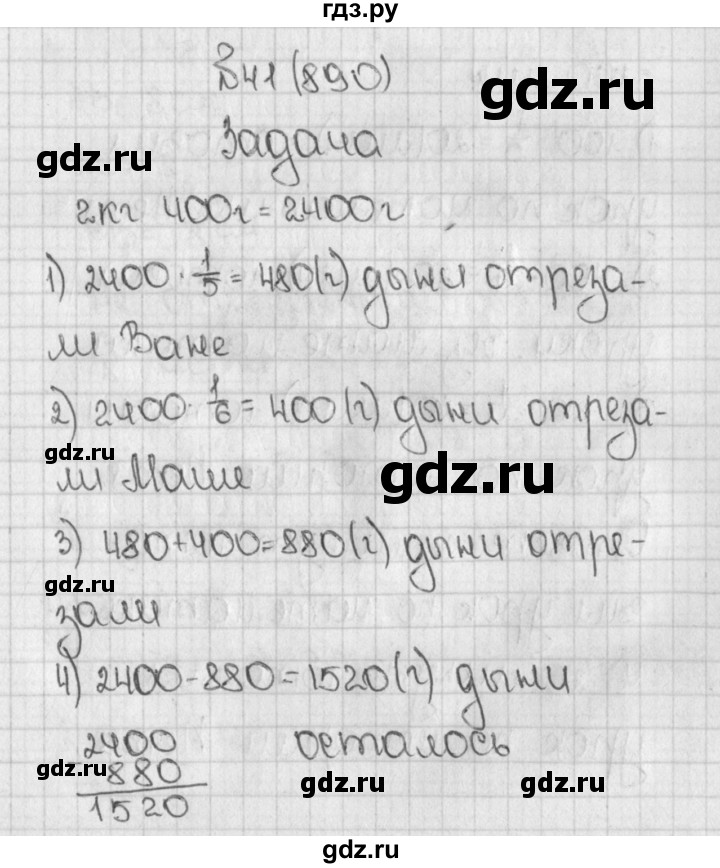 гдз.ру
№41 (890)
gdz.ru
Задача
gdz.ru
2кг 400г = 2400г
1) 2400 · 1/5 = 480(г) дыни отреза-
ли Ване
2) 2400 · 1/6 = 400(г) дыни отреза-
gdz.ru
ли Маше
gdz.ru
3) 480+400=880(г) дыни отре-
gdz.ru
зали
4) 2400-880=1520(г) дыни
2400
осталось
880
gdz.ru
gdz.ru
gdz.ru
1520
gdz.ru